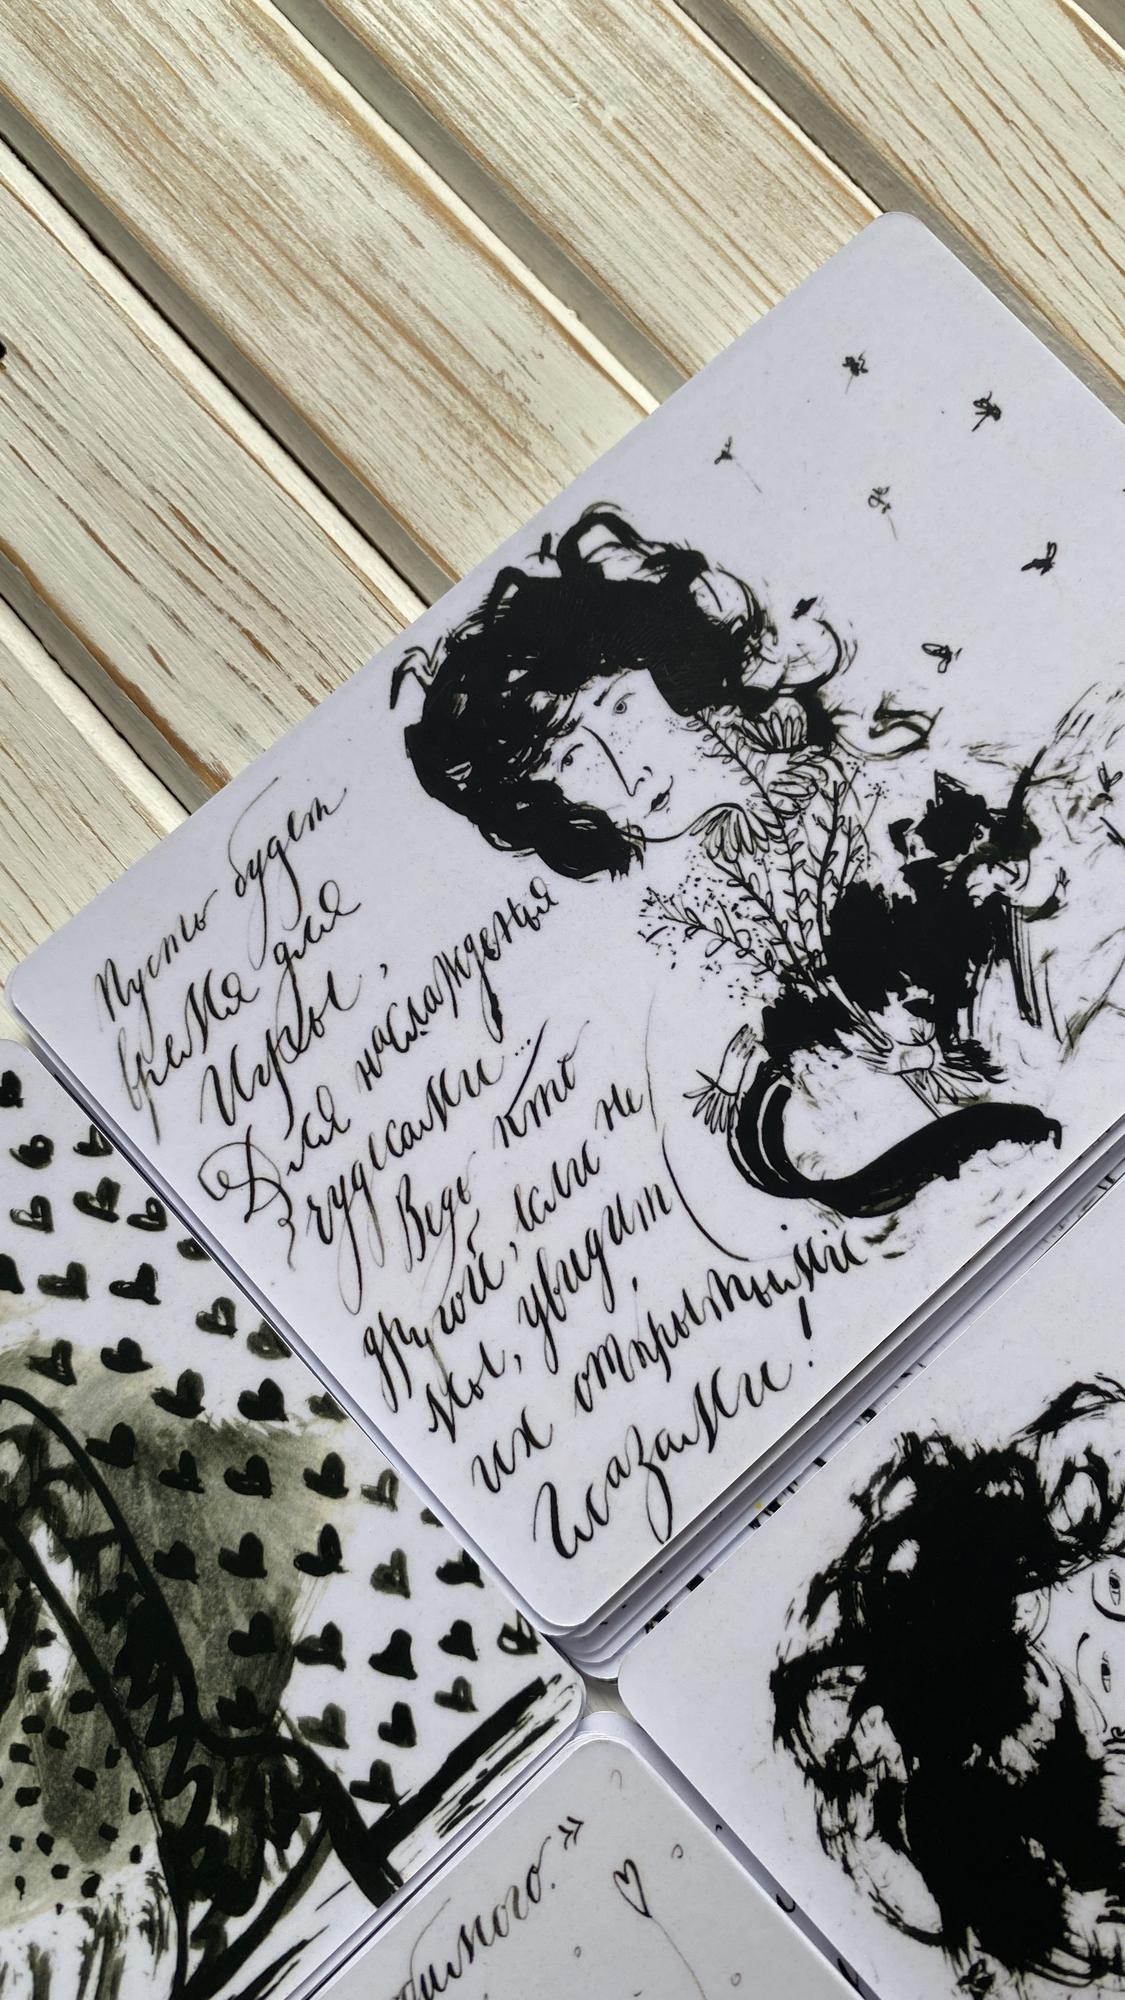 Пусть будет
время для
Игры,
Для наслажденья
чудесами...
Ведь кто
другой, если не
мы, увидит
их открытыми
Глазами!